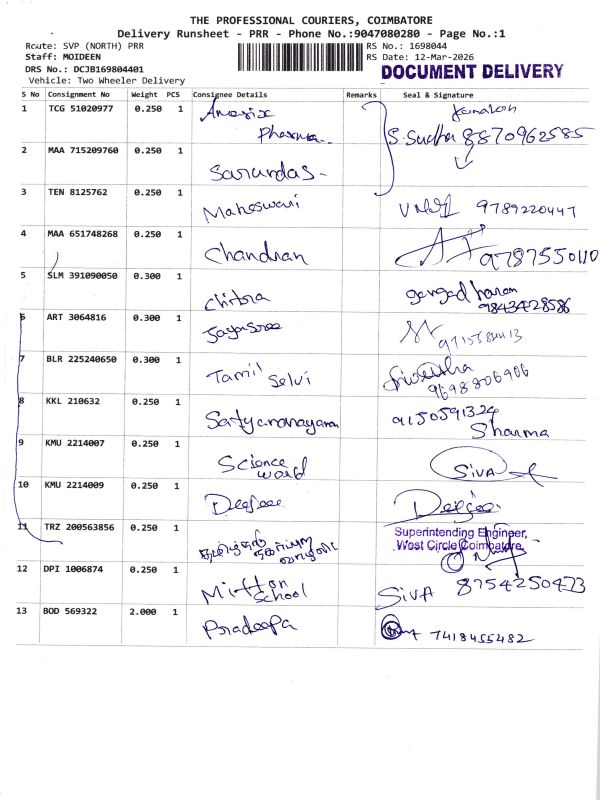 THE PROFESSIONAL COURIERS, COIMBATORE
Delivery Runsheet - PRR - Phone No.:9047080280 - Page No.:1
Route: SVP (NORTH) PRR
RS No.: 1698044
Staff: MOIDEEN
RS Date: 12-Mar-2026
DRS No.: DCJB169804401
DOCUMENT DELIVERY
Vehicle: Two Wheeler Delivery
S No Consignment No Weight PCS Consignee Details Remarks Seal & Signature
1 TCG 51020977 0.250 1 Pharma
S. Sudha 8870962585
2 MAA 715209760 0.250 1 Sarundas
3 TEN 8125762 0.250 1 Maheswari 9789220447
4 MAA 651748268 0.250 1 Chandran 9787550110
5 SLM 391090050 0.300 1 Chitra gangadharan
9843428586
6 ART 3064816 0.300 1 Jayasree
7 BLR 225240650 0.300 1 Tamil Selvi
9698806906
8 KKL 210632 0.250 1 Satyanarayanan 9150591324
Sharma
9 KMU 2214007 0.250 1 Science word SIVA
10 KMU 2214009 0.250 1 Deejee Deejee
11 TRZ 200563856 0.250 1
Superintending Engineer,
West Circle Coimbatore.
12 DPI 1006874 0.250 1 Mitton School SIVA 8754250473
13 BOD 569322 2.000 1 Pradeepa 7418455482